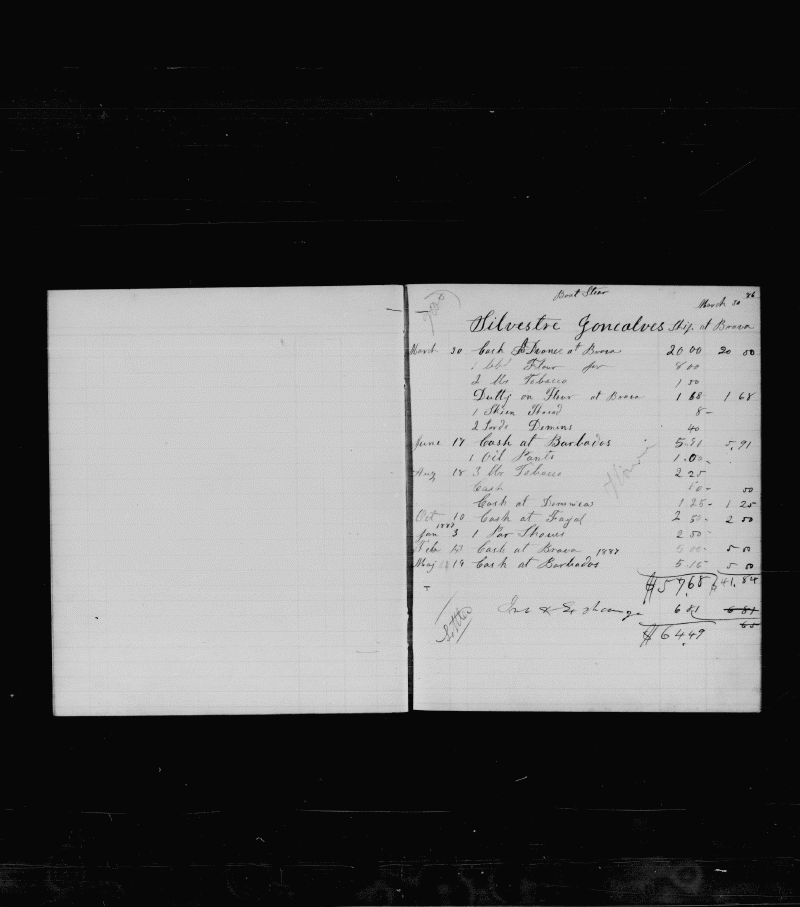 Boat Stear
March 30 86
Silvestre Goncalves Ship. at Brava
March 30 Cash Advance at Brava 20 00 20 00
1 bbl Flour for 8 00
2 lbs Tobacco 1 50
Dutty on Flour at Brava 1 68 1 68
1 Skien Thread 8
40
June 17 Cash at Barbados 5.91 5.91
1 Oil Pants 1.00
Aug 18 3 lbs Tobacco 2 25
Cash 50 50
Cash at Dominica 1 25 1 25
Oct 10 Cash at Fayal 2 50 2 50
1887
Jan 3 1 Par Shoues 2 50
Feb Cash at Brava 1887 5 00 5 00
May 19 Cash at Barbados 5 00
$57.68 $41.84
Ins & Exchange 6 81 6 81
$64.49 65
Settled